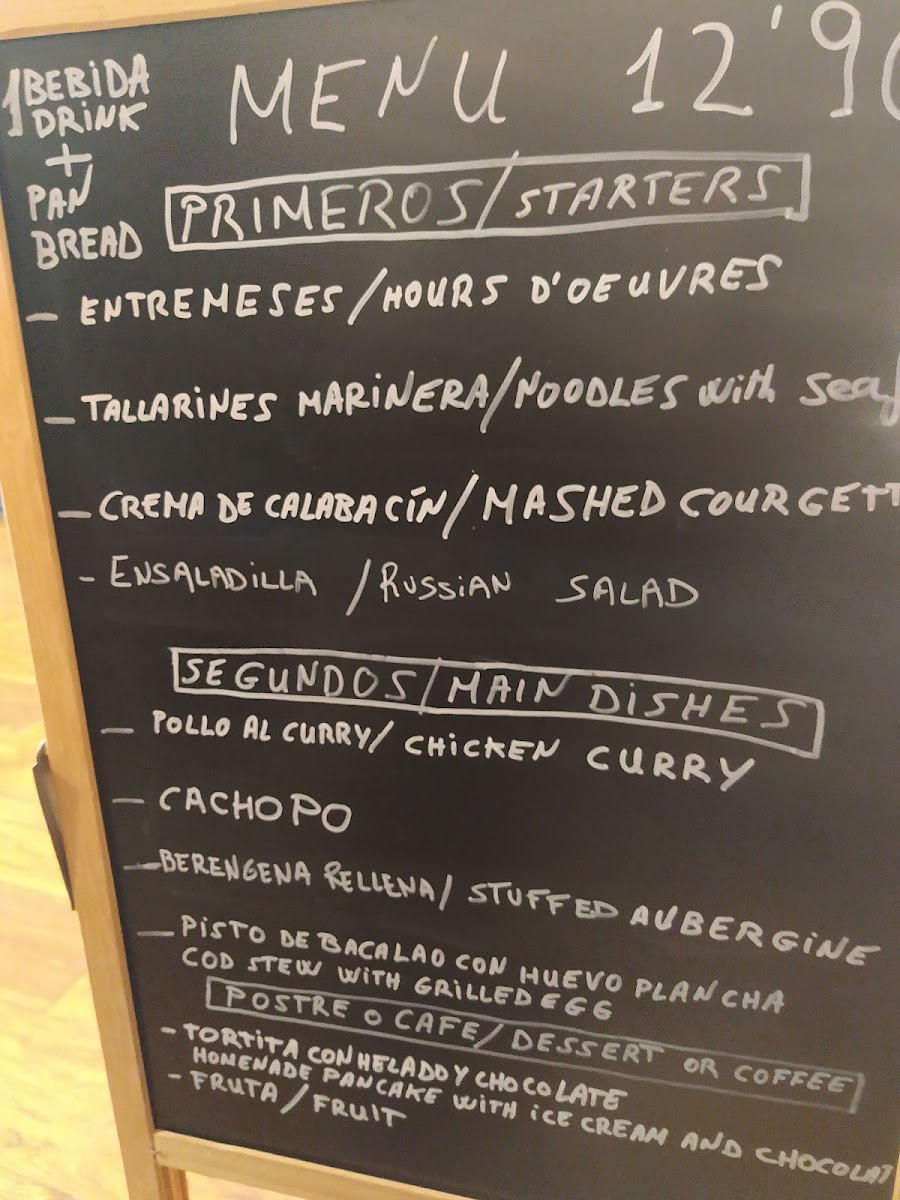 MENU 12'90
1 BEBiDA
DRiNK
+
PAN
BREAD
PRIMEROS/STARTERS
- ENTREMESES/HOURS D'OEUVRES
- TALLARiNES MARiNERA/NOODLES with Sea
- CREMA DE CALABACÍN/MASHED COURGETT
- ENSALADiLLA /RUSSiAN SALAD
SEGUNDOS/MAIN DiSHES
- POLLO AL CURRY/ CHICKEN CURRY
- CACHOPO
- BERENGENA RELLENA/ STUFFED AUBERGiNE
- PiSTO DE BACALAO CON HUEVO PLANCHA
COD STEW WiTH GRiLLED EGG
POSTRE O CAFE/DESSERT OR COFFEE
- TORTiTA CON HELADO Y CHOCOLATE
HOMENADE PANCAKE WiTH iCE CREAM AND CHOCOLAT
- FRUTA/FRUiT